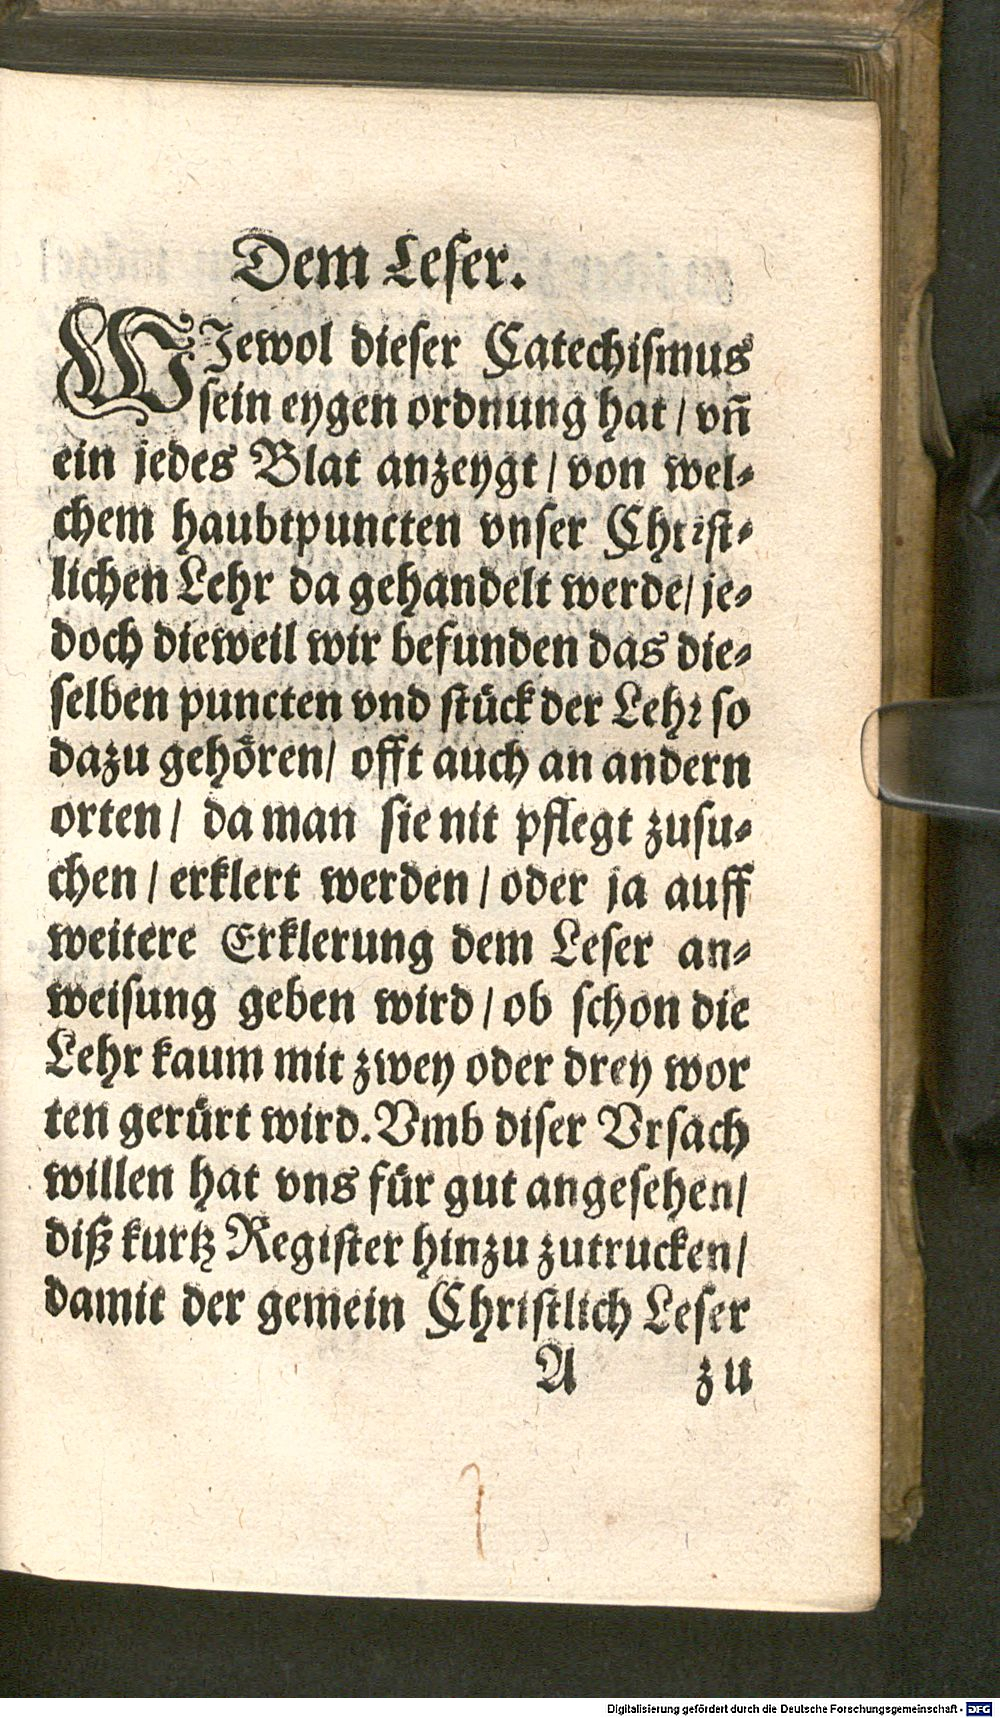 Dem Leser.
WJewol dieser Catechismus
sein eygen ordnung hat / vñ
ein jedes Blat anzeygt / von wel-
chem haubtpuncten vnser Christ-
lichen Lehr da gehandelt werde / je-
doch dieweil wir befunden das die-
selben puncten vnd stück der Lehr so
dazu gehören / offt auch an andern
orten / da man sie nit pflegt zusu-
chen / erklert werden / oder ja auff
weitere Erklerung dem Leser an-
weisung geben wird / ob schon die
Lehr kaum mit zwey oder drey wor
ten gerürt wird. Vmb diser Vrsach
willen hat vns für gut angesehen /
diß kurtz Register hinzu zutrucken /
damit der gemein Christlich Leser
A zu
Digitalisierung gefördert durch die Deutsche Forschungsgemeinschaft - DFG